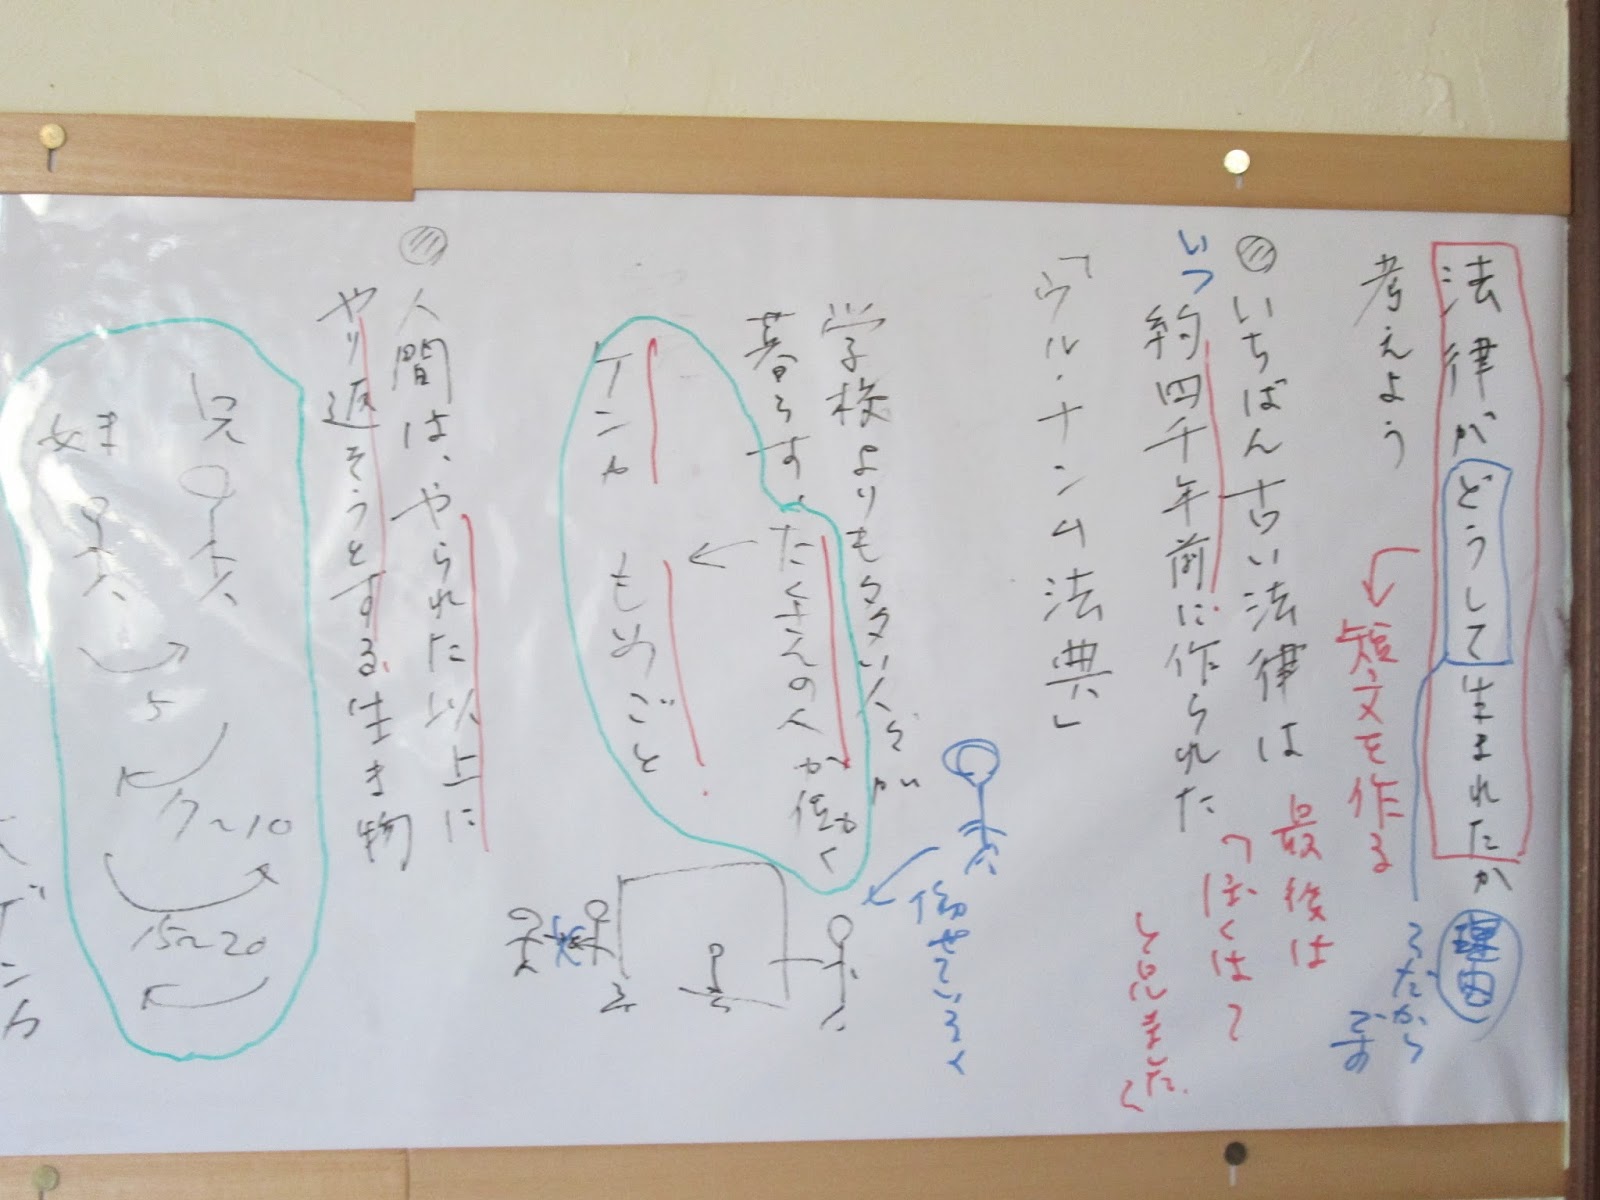 法律がどうして生まれたか
考えよう
理由
〜だから
です
短文を作る
いちばん古い法律は
いつ
約四千年前に作られた
「ウル・ナンム法典」
最後は
「ぼくはて
と思きました
学校よりも多い人が
暮らす、たくさんの人が働く
働せている人
ケンカ もめごと
人間は、やられた以上に
やり返そうとする生き物
兄
妹
5
7〜10
15〜20